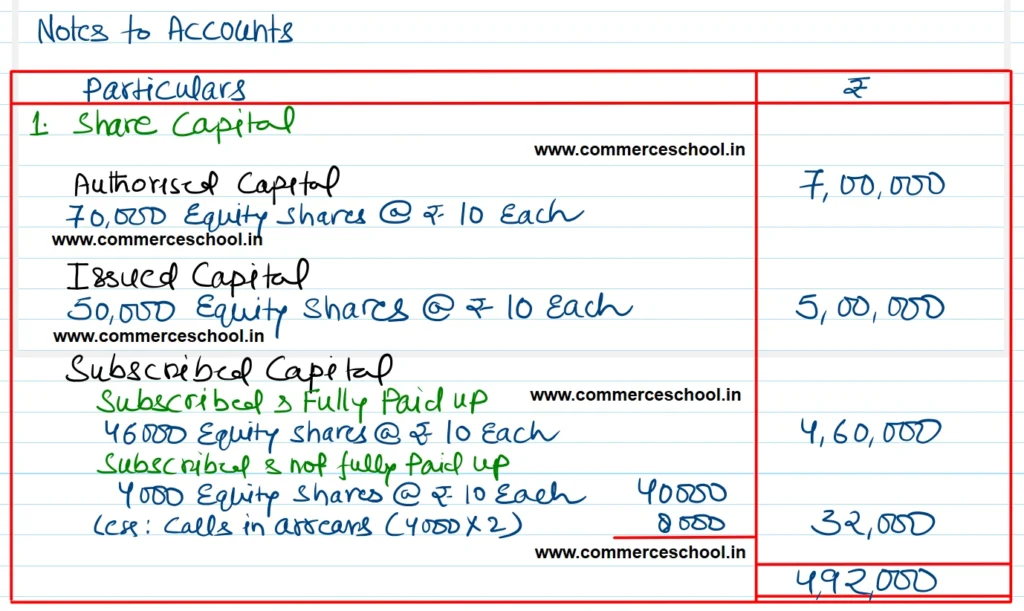 Notes to Accounts
Particulars ₹
1. Share Capital
www.commerceschool.in
Authorised Capital 7,00,000
70,000 Equity Shares @ ₹ 10 Each
www.commerceschool.in
Issued Capital
50,000 Equity Shares @ ₹ 10 Each 5,00,000
www.commerceschool.in
Subscribed Capital
Subscribed & Fully Paid up www.commerceschool.in
46000 Equity Shares @ ₹ 10 Each 4,60,000
Subscribed & not fully Paid up
4000 Equity Shares @ ₹ 10 Each 40000
Less: Calls in arrears (4000 X 2) 8000 32,000
www.commerceschool.in
4,92,000